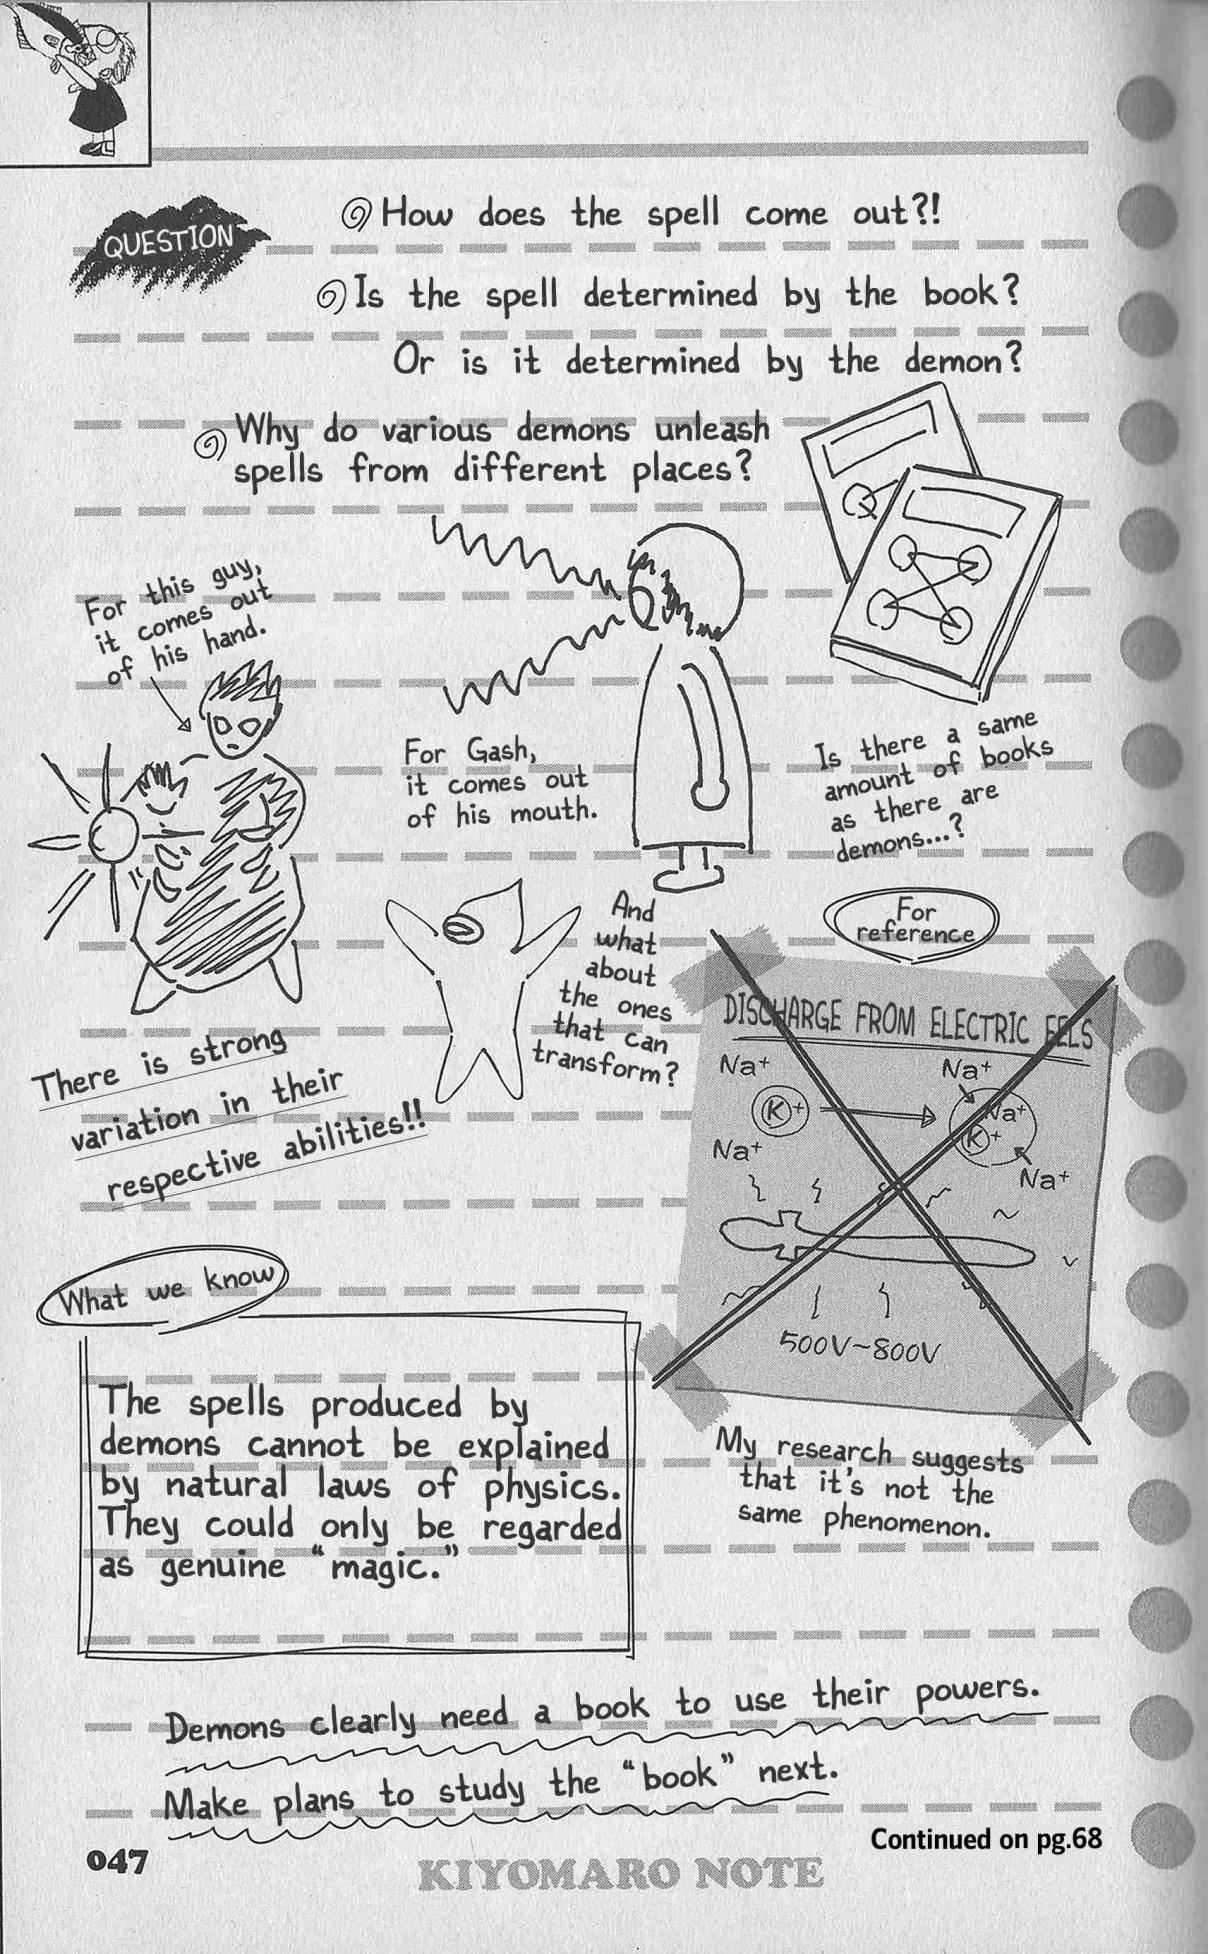 QUESTION
How does the spell come out?!
Is the spell determined by the book?
Or is it determined by the demon?
Why do various demons unleash
spells from different places?
For this guy,
it comes out
of his hand.
For Gash,
it comes out
of his mouth.
Is there a same
amount of books
as there are
demons...?
And
what
about
the ones
that can
transform?
There is strong
variation in their
respective abilities!!
For
reference
DISCHARGE FROM ELECTRIC EELS
Na+
Na+
K+
Na+
K+
Na+
Na+
500V~800V
My research suggests
that it's not the
same phenomenon.
What we know
The spells produced by
demons cannot be explained
by natural laws of physics.
They could only be regarded
as genuine "magic."
Demons clearly need a book to use their powers.
Make plans to study the "book" next.
Continued on pg.68
047
KIYOMARO NOTE